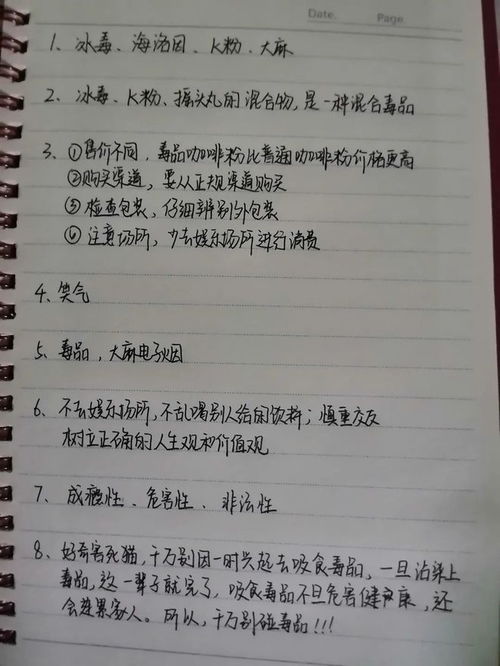 Date. Page
1、冰毒、海洛因、K粉、大麻
2、冰毒、K粉、摇头丸的混合物,是一种混合毒品
3、①售价不同,毒品咖啡粉比普通咖啡粉价格更高
②购买渠道,要从正规渠道购买
③检查包装,仔细辨别外包装
④注意场所,少去娱乐场所进行消费
4、笑气
5、毒品,大麻电子烟
6、不去娱乐场所,不乱喝别人给的饮料;慎重交友
树立正确的人生观和价值观
7、成瘾性、危害性、非法性
8、好奇害死猫,千万别因一时兴起去吸食毒品,一旦沾染上
毒品,这一辈子就完了,吸食毒品不旦危害健康,还
会连累家人。所以,千万别碰毒品!!!